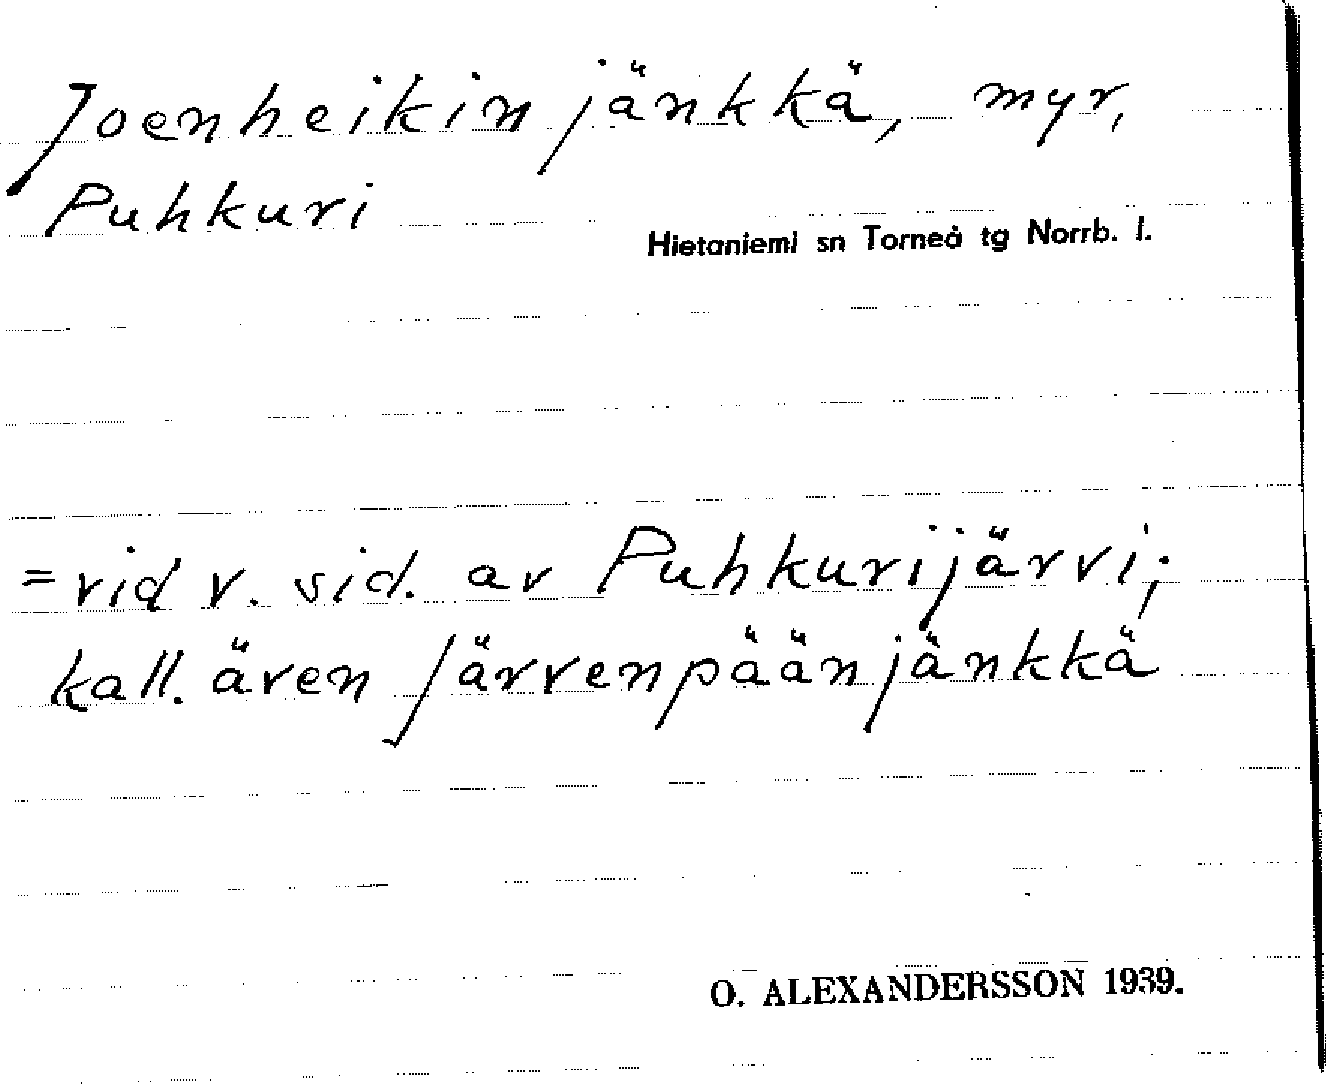 Joenheikinjänkkä, myr,
Puhkuri
Hietaniemi sn Torneå tg Norrb. l.
= vid v. sid. av Puhkurijärvi;
kall. även Järvenpäänjänkkä
O. ALEXANDERSSON 1939.